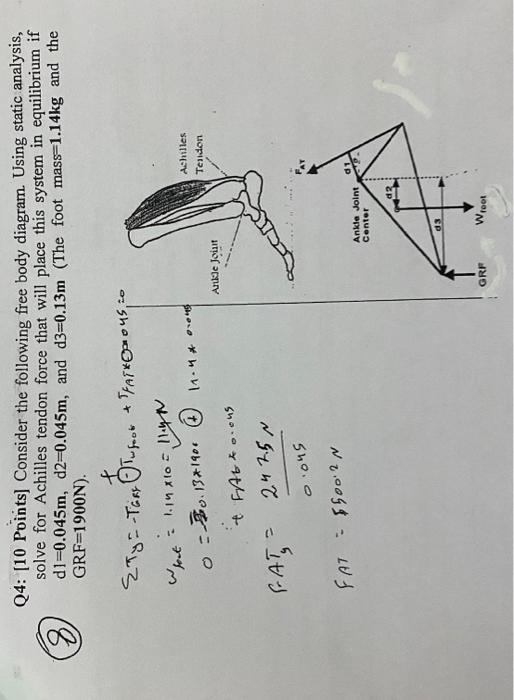 Q4: [10 Points] Consider the following free body diagram. Using static analysis,
solve for Achilles tendon force that will place this system in equilibrium if
d1=0.045m, d2=0.045m, and d3=0.13m (The foot mass=1.14kg and the
GRF=1900N).
8
Στy = -TGRF + Twfoot + TFAT*0.045=0
Wfoot = 1.14 x10 = 11.4N
0 = 0.13*1900 + 11.4 * 0.045
+ FAT * 0.045
FAT = 2475N
0.045
FAT = 5500.2N
Achilles
Tendon
Ankle Joint
FAT
d1
Ankle Joint
Center
d2
d3
GRF
Wfoot